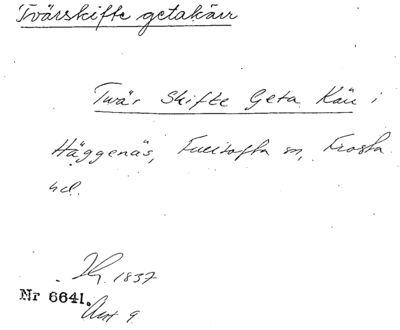 Tvärskifte getakärr
Twär Skifte Geta Kärr i
Häggenäs, Fulltofta sn, Frosta
hd.
1837
Nr 6641.
Akt 9